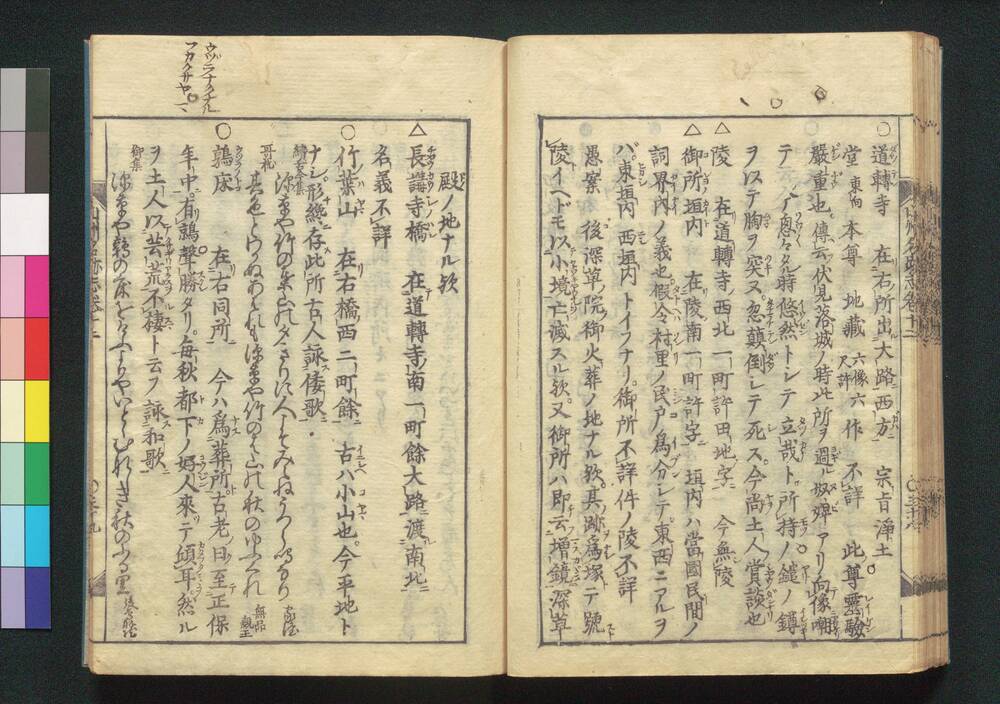 ○道轉寺 在右所出大路西方 宗旨淨土
堂 東向 本尊 地藏 六像六尺許 作 不詳 此尊靈驗
嚴重也傳云伏見落城ノ時此所ヲ過ル奴婢アリ向像嘲
テ 悤々タル時悠然トシテ立哉ト所持ノ鑓ノ鐏
ヲ以テ胸ヲ突又忽顛倒シテ死ス今尚土人賞談也
△陵 在道轉寺ノ西北一町許田地字 今無陵
△御所垣内 在陵南一町許字 垣内ハ當國民間ノ
詞界内ノ義也假令村里ノ民戸爲分レテ東西ニアルヲ
バ東垣内 西垣内トイフナリ御所不詳件ノ陵不詳
愚案 後深草ノ院御火葬ノ地ナル欤其跡爲塚テ號
陵イヘドモ以小境亡滅スル欤又御所ハ即云増鏡深草
殿ノ地ナル欤
△長講寺橋 在道轉寺南一町餘大路渡南北
名義不詳
○竹葉山 在右橋西二町餘 古ハ小山也今平地ト
ナシ形纔存此所古人詠倭歌
續古今集
深草や竹の葉山の夕きりに人こそみえぬうつら鳴なり 家隆
其色とわかぬあはれも深草や竹のは山の秋のゆふくれ 無品親王
○鶉床 在右同所 今ハ爲葬所古老曰至正保
年中有鶉聲勝タリ毎秋都下ノ好人來テ傾耳然ル
ヲ土人以芸荒不棲ト云フ詠和歌
御集
深草や鶉の床を
秋のふる里